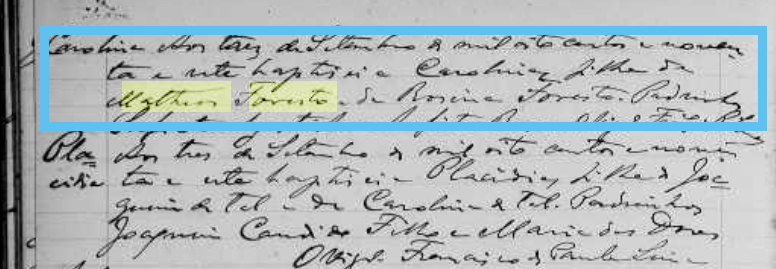 Carolina Aos tres de Setembro de mil oito centos e noven
ta e sete baptisei a Carolina, filha de
Matheos Foresto e de Rosina Foresta. Padrinhos
Pla= Aos tres de Setembro de mil oito centos e noven
cidia ta e sete baptisei a Placidia, filha de Joa
quim de Tal e de Carolina de Tal. Padrinhos
Joaquim Candido Filho e Maria das Dores
O Vigº Francisco de Paula Lima